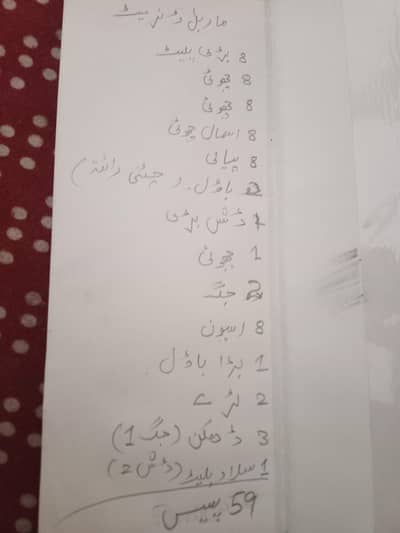 ماربل ڈنر سیٹ
8 بڑی پلیٹ
8 چھوٹی
8 چھوٹی
8 اسمال چھوٹی
8 پیالی
2 باؤل . ( چٹنی رائتہ )
1 ڈش بڑی
1 چھوٹی
2 جگ
8 اسپون
1 بڑا باؤل
2 ٹرے
3 ڈھکن (جگ 1)
1 سلاد پلیٹ (ڈش 2)
59 پیس